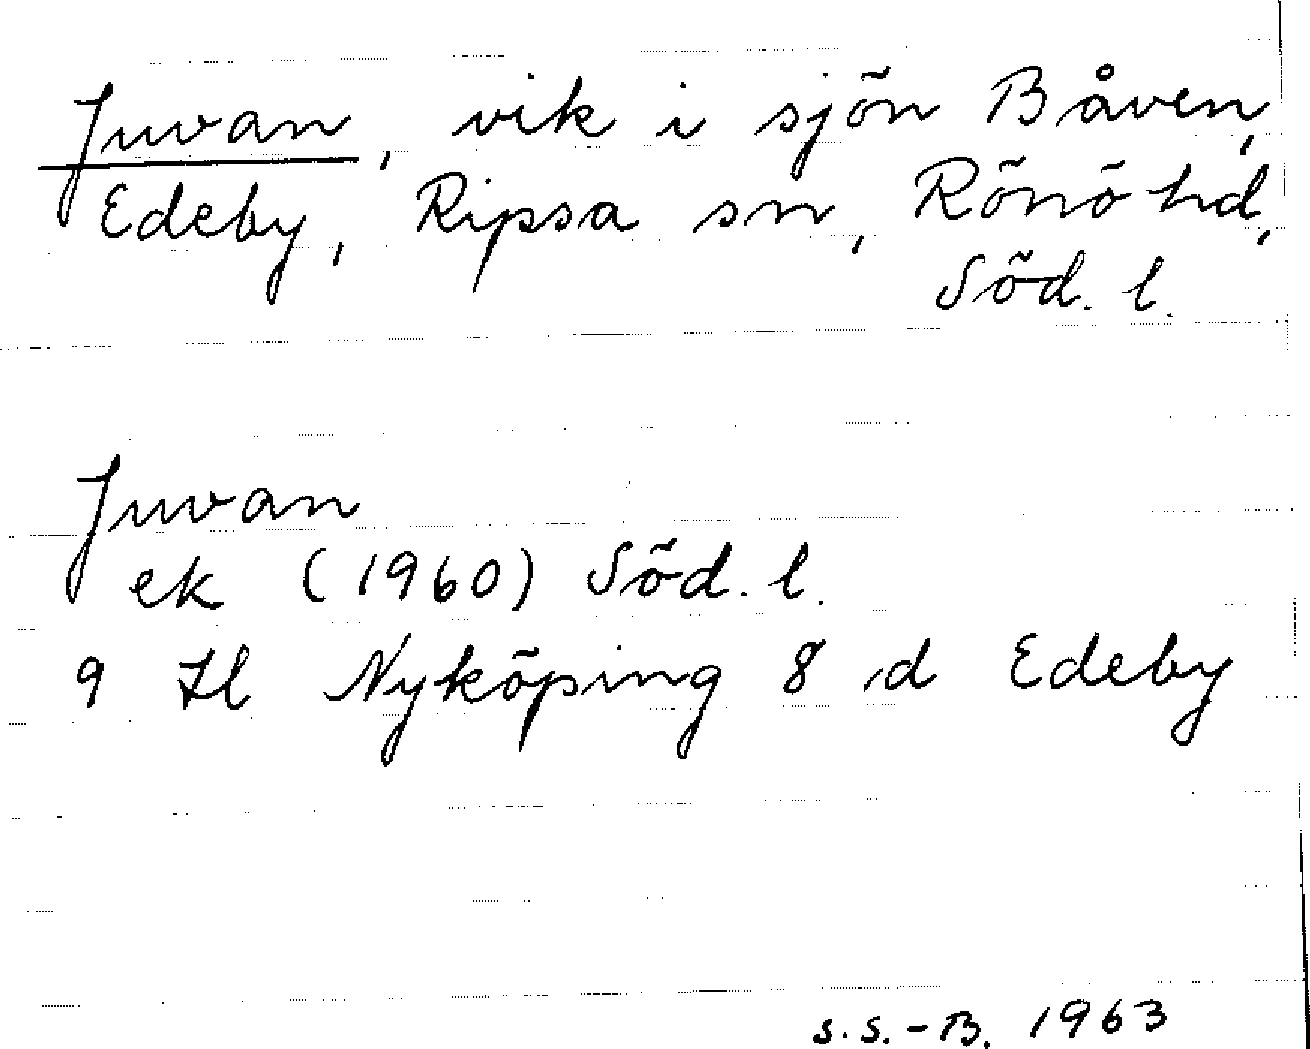 Juvan, vik i sjön Båven,
Edeby, Ripsa sn, Rönö hd,
Söd. l.
Juvan
ek (1960) Söd. l.
9 H Nyköping 8 d Edeby
S.S.-B. 1963